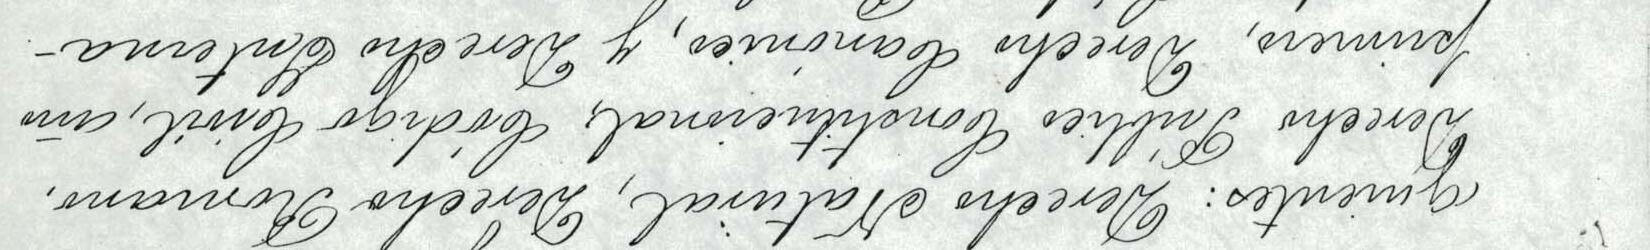 guientes: Derecho Natural, Derecho Romano,
Derecho Público Constitucional, Código Civil, año
primero, Derecho Canónico, y Derecho Interna-